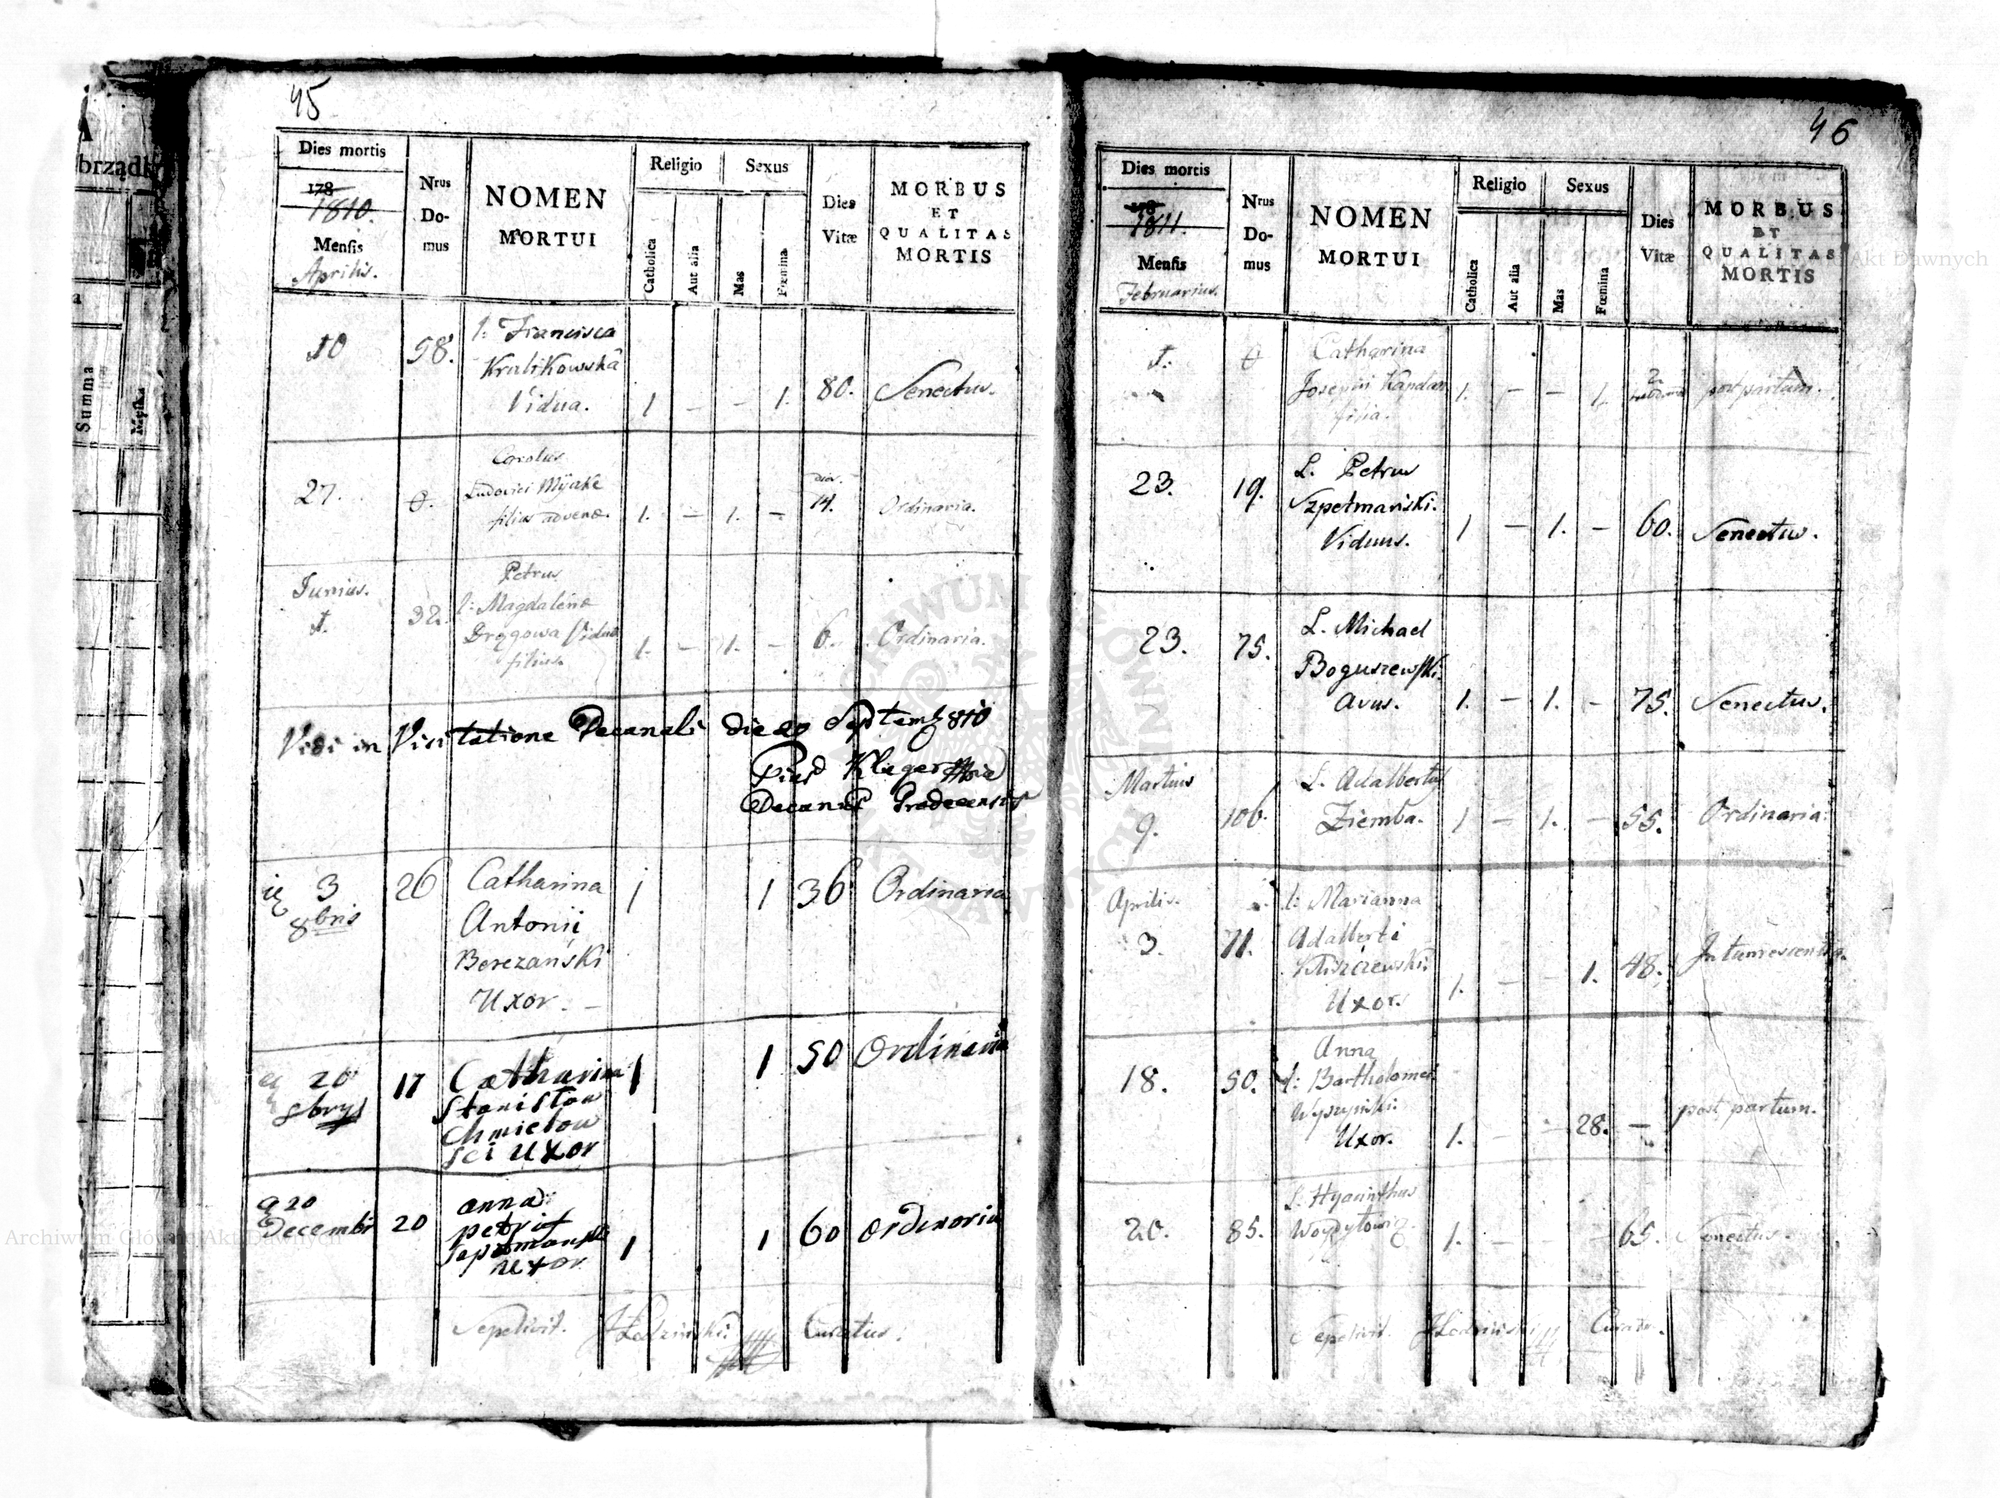 45
Dies mortis
178
1810.
Mensis
Aprilis.
Nrus
Do-
mus
NOMEN
MORTUI
Religio
Catholica
Aut alia
Sexus
Mas
Fœmina
Dies
Vitæ
MORBUS
ET
QUALITAS
MORTIS
10
58.
l: Francisca
Kralikowska
Vidua.
1 - - 1. 80. Senectus.
27.
0.
Carolus
Ludovici
filius advena.
1. - 1. - 14. Ordinaria.
Junius.
1.
32.
Petrus
l: Magdalena
Drągowa Vidua
filius.
1. - 1. - 6. Ordinaria.
Vidi in Visitatione Decanali die 20 Septemb 810
Pius Klüger
Decanus Grodecensis
3
8bris
26
Catharina
Antonii
Berezański
Uxor. -
1 1 36 Ordinaria
20
17
Catharina
Stanislaw
Chmielow
sci Uxor
1 1 50 Ordinaria
a 20
Decembr
20
anna
petri
uxor
1 1 60 ordinaria
Sepelivit. Curatus.
46
Dies mortis
178
1811.
Mensis
Februarius.
Nrus
Do-
mus
NOMEN
MORTUI
Religio
Catholica
Aut alia
Sexus
Mas
Fœmina
Dies
Vitæ
MORBUS
ET
QUALITAS
MORTIS
1.
0
Catharina
Josephi
filia.
1. - - 1. 2. post partum.
23.
19.
L. Petrus
Szpetmański.
Viduus.
1 - 1. - 60. Senectus.
23.
75.
L. Michael
Boguszewski.
Avus.
1. - 1. - 75. Senectus.
Martius
9.
106.
L. Adalbertus
Ziemba.
1 - 1. - 55. Ordinaria.
Aprilis.
3.
71.
l: Marianna
Adalberti
Uxor.
1. - - 1. 48. Intumescentia.
18.
50.
Anna
l: Bartholomei
Wyszyński.
Uxor.
1. - - 28. - post partum.
20.
85.
L. Hyacinthus
1. - - - 65. Senectus.
Sepelivit.
brządk
Summa
Archiwum Główne Akt Dawnych
Akt Dawnych